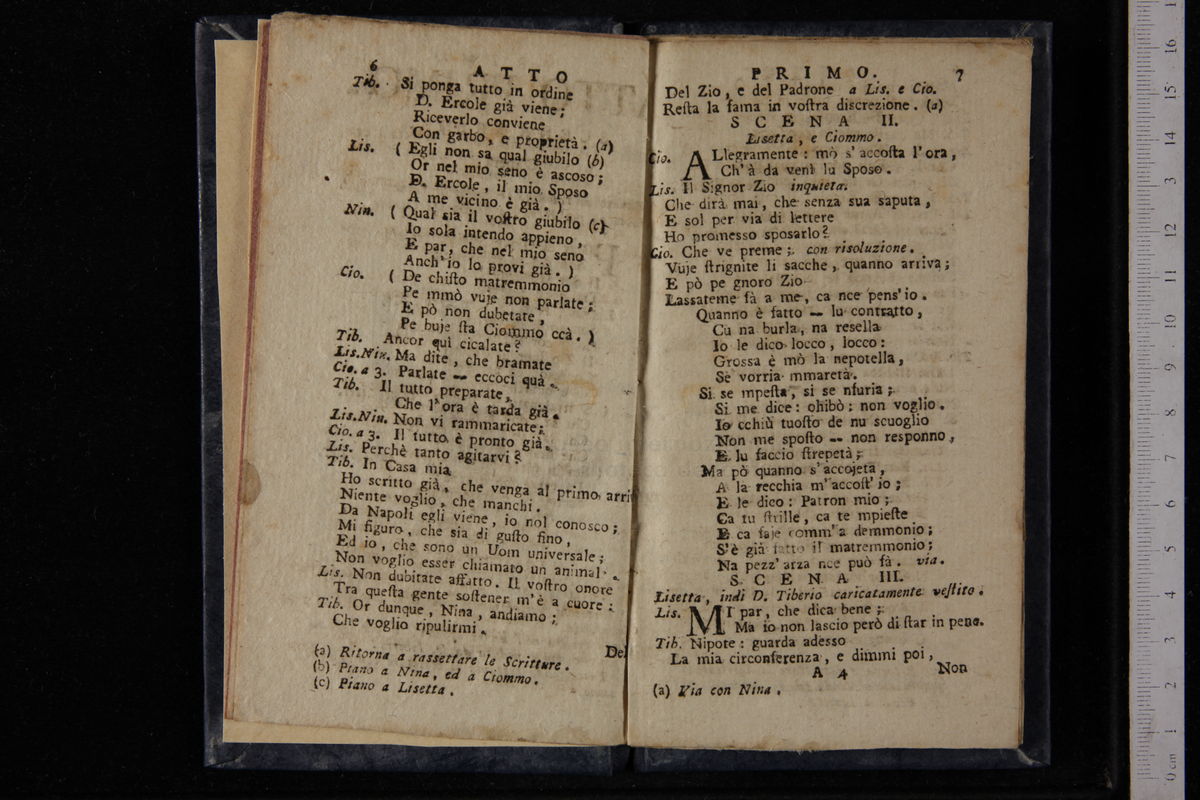 6 ATTO
Tib. Si ponga tutto in ordine
D. Ercole già viene;
Riceverlo conviene
Con garbo, e proprietà. (a)
Lis. ( Egli non sa qual giubilo (b)
Or nel mio seno è ascoso;
D. Ercole, il mio Sposo
A me vicino è già. )
Nin. ( Qual sia il voſtro giubilo (c)
Io sola intendo appieno,
E par, che nel mio seno
Anch'io lo provi già. )
Cio. ( De chiſto matremmonio
Pe mmò vuje non parlate;
E pò non dubetate,
Pe buje ſta Ciommo ccà. )
Tib. Ancor quì cicalate?
Lis.Nin. Ma dite, che bramate
Cio. a 3. Parlate -- eccoci quà.
Tib. Il tutto preparate,
Che l'ora è tarda già.
Lis.Nin. Non vi rammaricate;
Cio. a 3. Il tutto è pronto già.
Lis. Perchè tanto agitarvi?
Tib. In Casa mia
Ho scritto già, che venga al primo arri
Niente voglio, che manchi.
Da Napoli egli viene, io nol conosco;
Mi figuro, che sia di guſto fino,
Ed io, che sono un Uom universale;
Non voglio esser chiamato un animal
Lis. Non dubitate affatto. Il voſtro onore
Tra queſta gente soſtener m'è a cuore;
Tib. Or dunque, Nina, andiamo;
Che voglio ripulirmi.
Del
(a) Ritorna a rassettare le Scritture.
(b) Piano a Nina, ed a Ciommo.
(c) Piano a Lisetta.
PRIMO. 7
Del Zio, e del Padrone a Lis. e Cio.
Reſta la fama in voſtra discrezione. (a)
SCENA II.
Lisetta, e Ciommo.
Cio. ALlegramente: mò s'accoſta l'ora,
Ch'à da venì lu Sposo.
Lis. Il Signor Zio inquieta.
Che dirà mai, che senza sua saputa,
E sol per via di lettere
Ho promesso sposarlo?
Cio. Che ve preme; con risoluzione.
Vuje ſtrignite li sacche, quanno arriva;
E pò pe gnoro Zio
Lassateme fà a me, ca nce pens'io.
Quanno è fatto -- lu contratto,
Cu na burla, na resella
Io le dico locco, locco:
Grossa è mò la nepotella,
Se vorria mmaretà.
Si se mpeſta, si se nfuria;
Si me dice: ohibò: non voglio.
Io cchiù tuoſto de nu scuoglio
Non me spoſto -- non responno,
E lu faccio ſtrepetà;
Ma pò quanno s'accojeta,
A la recchia m'accoſt'io;
E le dico: Patron mio;
Ca tu ſtrille, ca te mpieſte
E ca faje comm'a demmonio;
S'è già fatto il matremmonio;
Na pezz'arza nce può fà. via.
SCENA III.
Lisetta, indi D. Tiberio caricatamente veſtito.
Lis. MI par, che dica bene;
Ma io non lascio però di ſtar in pene.
Tib. Nipote: guarda adesso
La mia circonferenza, e dimmi poi,
A 4 Non
(a) Via con Nina.
0 cm 1 2 3 4 5 6 7 8 9 10 11 12 13 14 15 16